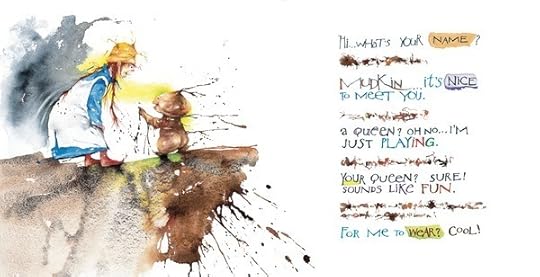 Hi...WHAT'S YOUR NAME?
MUDKIN.....it's NICE
TO MEET YOU.
a QUEEN? OH NO...I'M
JUST PLAYING.
YOUR QUEEN? SURE!
SOUNDS LIKE FUN.
FOR ME TO WEAR? COOL!